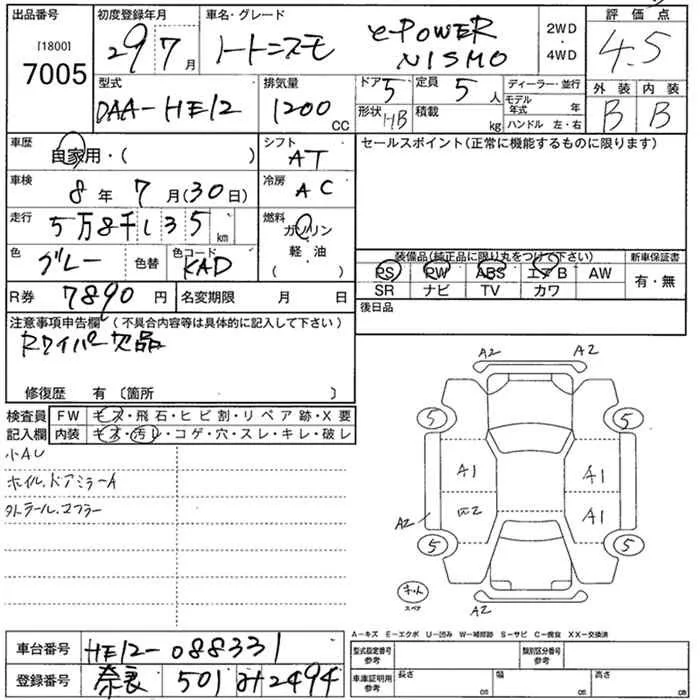 出品番号
[1800]
7005
初度登録年月
29 7 月
車名・グレード
ノートニスモ e-POWER
NISMO
2WD
・
4WD
評価点
4.5
型式
DAA-HE12
排気量
1200 CC
ドア 5
定員 5 人
形状 HB
積載 kg
ディーラー・並行
モデル年式 年
ハンドル 左・右
外装 内装
B B
車歴 自家用・( )
シフト AT
セールスポイント(正常に機能するものに限ります)
車検 8 年 7 月(30日)
冷房 AC
走行 5万8千135 km
燃料 ガソリン
軽・油
( )
色 グレー 色替
色コード KAD
装備品(純正品に限り丸をつけて下さい)
新車保証書
PS PW ABS エアB AW
有・無
SR ナビ TV カワ
R券 7890 円
名変期限 月 日
後日品
注意事項申告欄(不具合内容等は具体的に記入して下さい)
Rワイパー欠品
修復歴 有〔箇所 〕
検査員
記入欄
FW キズ・飛石・ヒビ割・リペア跡・X要
内装 キズ・汚レ・コゲ・穴・スレ・キレ・破レ
小AU
ホイル.ドアミラーA
タトラール.マフラー
A2 A2
5 5
A1 A1
A2 A1
5 5
スペア
A2
A-キズ E-エクボ U-凹み W-補修跡 S-サビ C-腐食 XX-交換済
車台番号 HE12-088331
登録番号 奈良 501 み2494
型式指定番号
参考
類別区分番号
参考
車庫証明用
参考
長さ cm
幅 cm
高さ cm